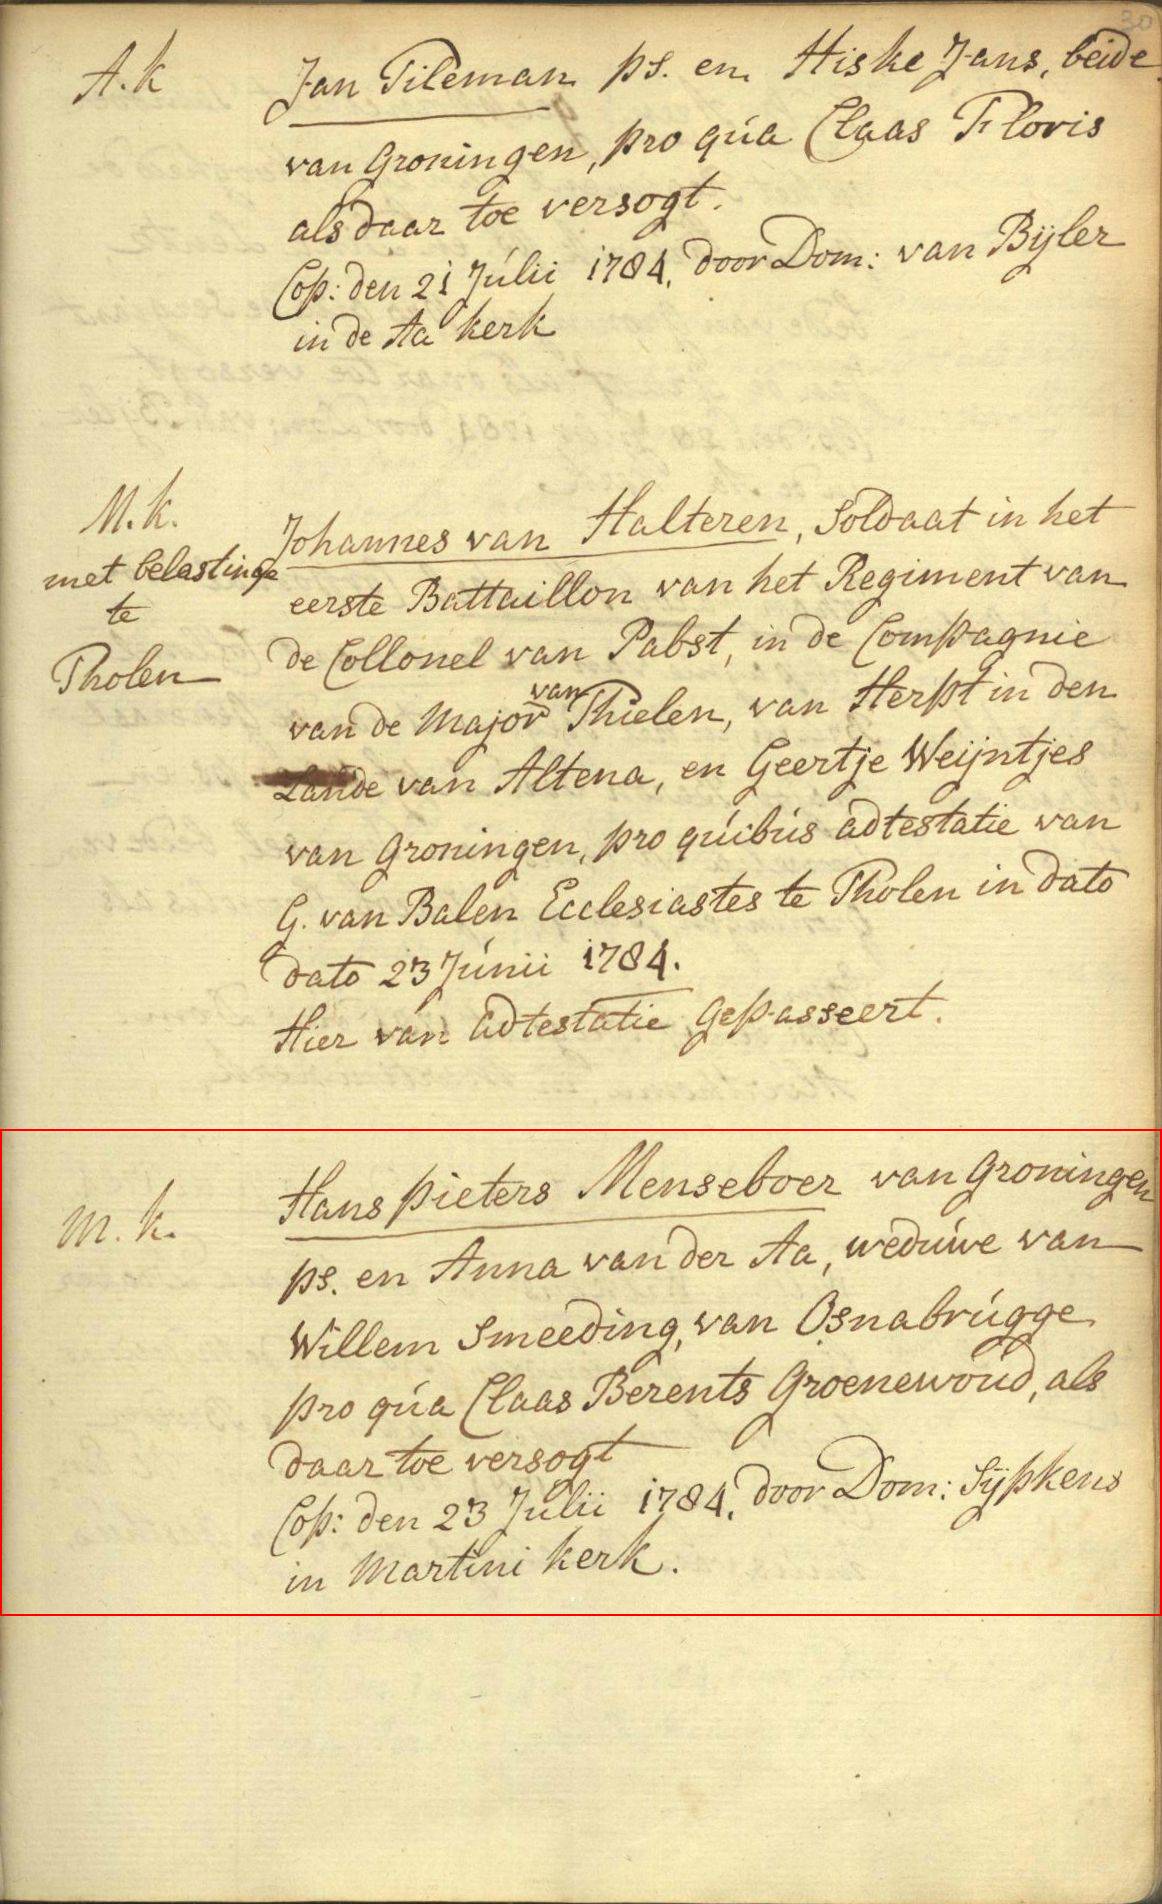 30
A.k
Jan Tileman ps. en Hiske Jans, beide
van Groningen, pro qúa Claas Floris
als daar toe versogt.
Cop: den 21 Júlii 1784. door Dom: van Bijler
in de Aa kerk
M.k.
met belastinge
te
Tholen
Johannes van Halteren, Soldaat in het
eerste Battaillon van het Regiment van
de Collonel van Pabst, in de Compagnie
van de Major van Thielen, van Herpt in den
Lande van Altena, en Geertje Weijntjes
van Groningen, pro qúibús adtestatie van
G. van Balen Ecclesiastes te Tholen in dato
dato 23 Júnii 1784.
Hier van adtestatie gepasseert.
M.k.
Hans pieters Menseboer van Groningen
ps. en Anna van der Aa, wedúwe van
Willem Smeeding, van Osnabrúgge
pro qúa Claas Berents Groenewoud, als
daar toe versogt
Cop: den 23 Júlii 1784. door Dom: Sijpkens
in Martini kerk.